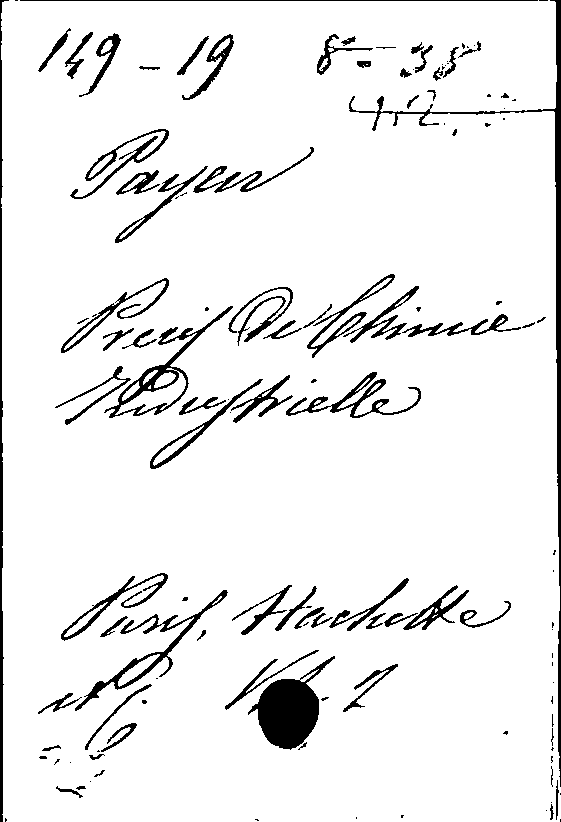 149-19 8-38
Payen
Precis de Chimie
Industrielle
Paris, Hachette
et C. Vol. 2